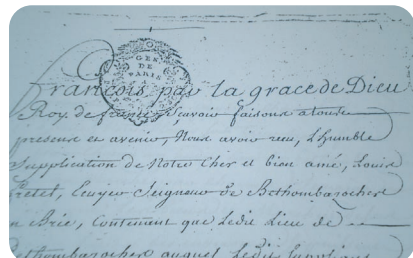 GEN.
DE
PARIS
François par la grace de Dieu
Roy de france, scavoir faisons a tous
presens et avenir, Nous avoir receu, l'humble
supplication de Notre Cher et bien amé, Louis
Seigneur de Bethombarocher
n Brie, Contenant que ledit Lieu de
Bethombarocher auquel ledit